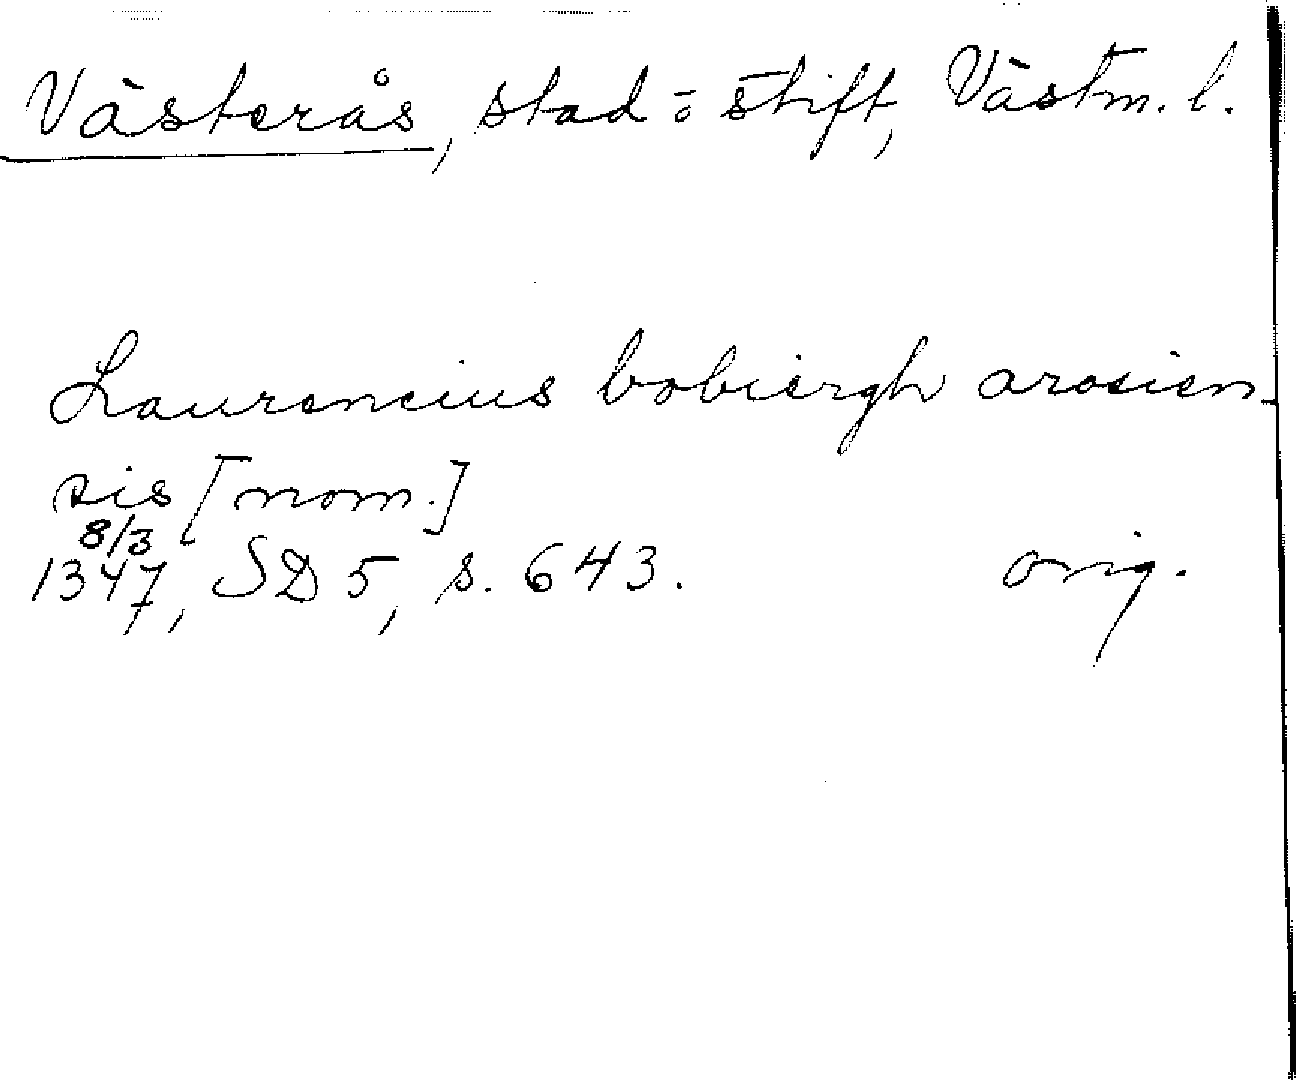 Västerås, stad o stift, Västm. l.
Laurencius bobiergh arosien-
sis [nom.]
8/3
1347, SD 5, s. 643. orig.